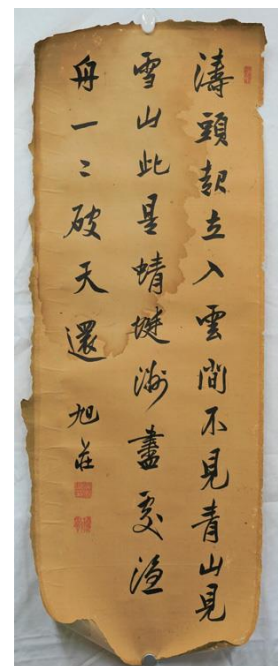 濤頭立入雲間不見青山見
雪山此是蜻蜓洲盡處漁
舟一〻破天還 旭荘